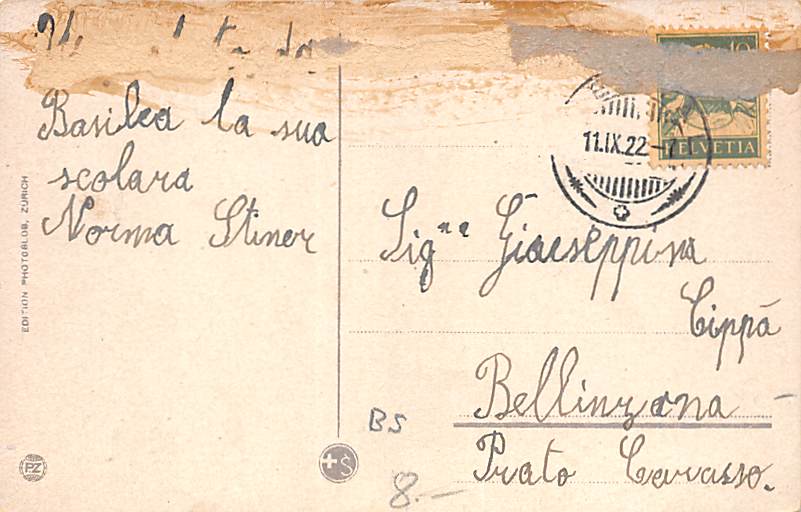 Basilea la sua
scolara
Norma Stiner
EDITION PHOTOGLOB, ZÜRICH
PZ
+S
10
HELVETIA
11.IX.22
Sig.na Giuseppina
Cippà
Bellinzona
Prato Carasso.
BS
8.—